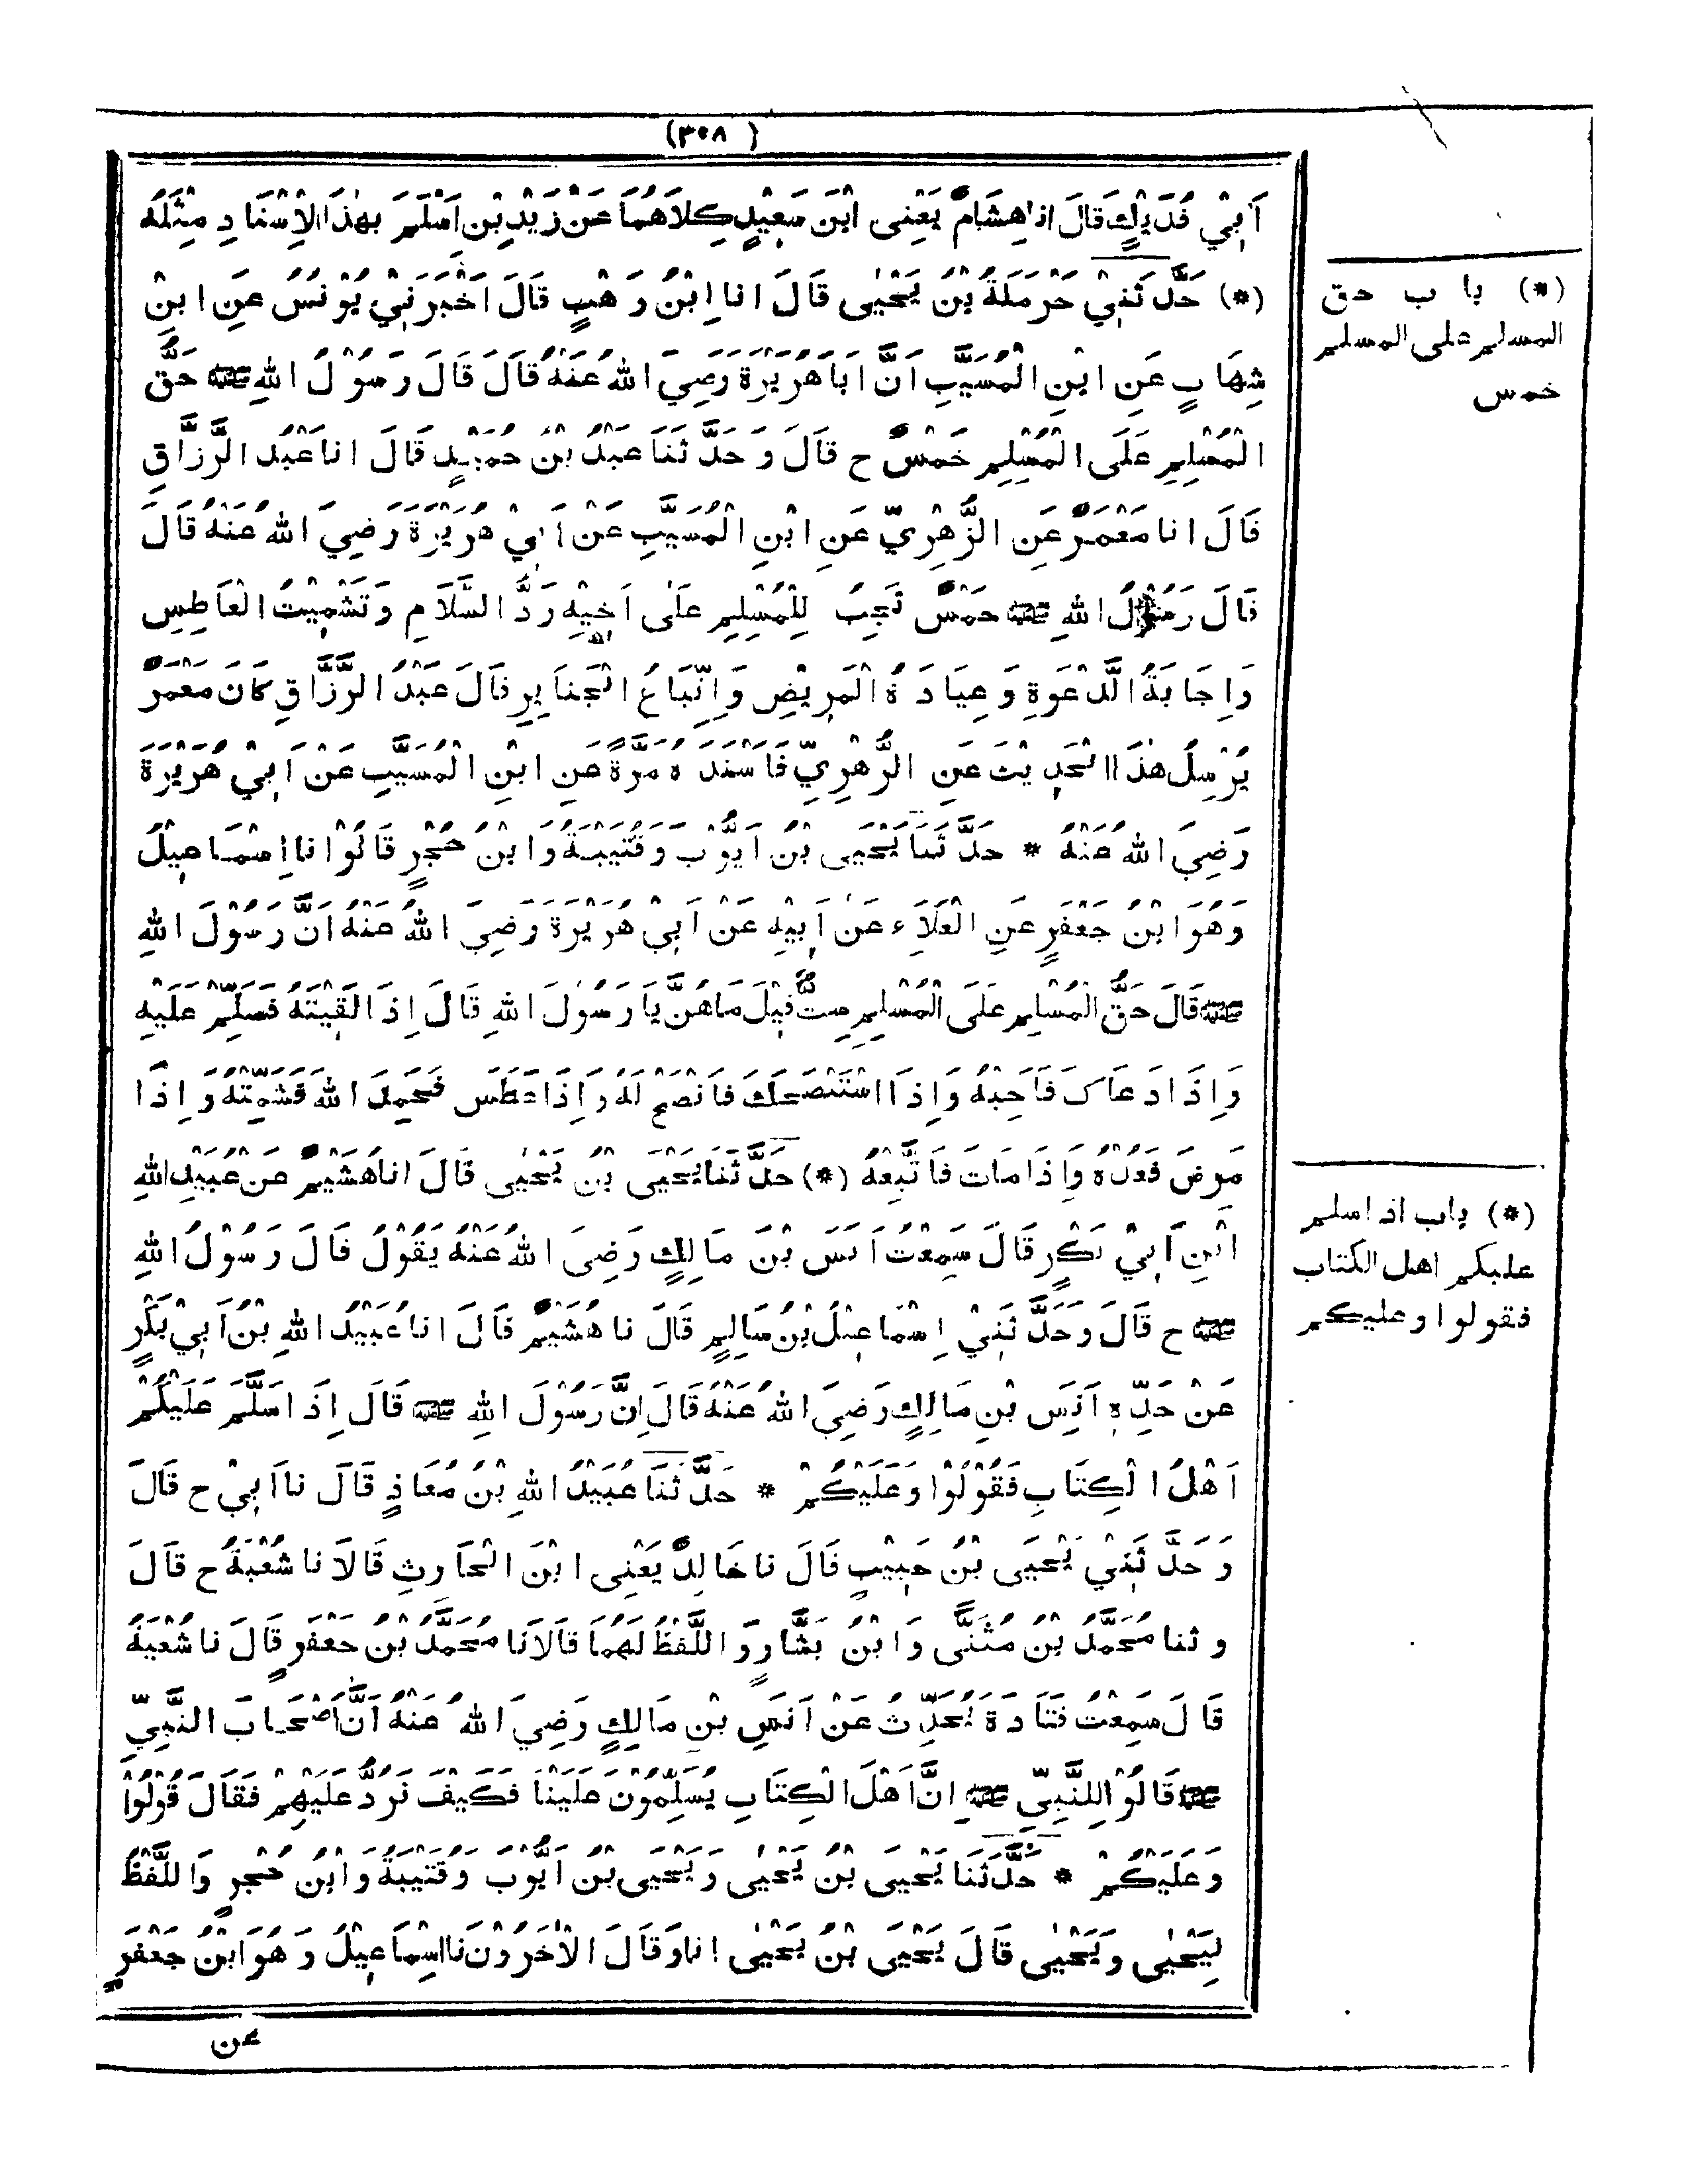 (٣٥٨)
اَبِيْ فُدَيْكٍ قَالَ انا هِشَامٌ يَعْنِى ابْنَ سَعِيْدٍ كِلَاهُمَا عَنْ زَيْدِ بْنِ اَسْلَمَ بِهٰذَا الْاِسْنَادِ مِثْلَهُ
(*) حَدَّثَنِيْ حَرْمَلَةُ بْنُ يَحْيٰى قَالَ انا اِبْنُ وَهْبٍ قَالَ اَخْبَرَنِيْ يُوْنُسُ عَنِ ابْنِ
شِهَابٍ عَنِ ابْنِ الْمُسَيَّبِ اَنَّ اَبَا هُرَيْرَةَ رَضِيَ اللهُ عَنْهُ قَالَ قَالَ رَسُوْلُ اللهِ ﷺ حَقُّ
الْمُسْلِمِ عَلَى الْمُسْلِمِ خَمْسٌ ح قَالَ وَحَدَّثَنَا عَبْدُ بْنُ حُمَيْدٍ قَالَ انا عَبْدُ الرَّزَّاقِ
قَالَ انا مَعْمَرٌ عَنِ الزُّهْرِيِّ عَنِ ابْنِ الْمُسَيَّبِ عَنْ اَبِيْ هُرَيْرَةَ رَضِيَ اللهُ عَنْهُ قَالَ
قَالَ رَسُوْلُ اللهِ ﷺ خَمْسٌ تَجِبُ لِلْمُسْلِمِ عَلٰى اَخِيْهِ رَدُّ السَّلَامِ وَتَشْمِيْتُ الْعَاطِسِ
وَاِجَابَةُ الدَّعْوَةِ وَعِيَادَةُ الْمَرِيْضِ وَاِتِّبَاعُ الْجَنَايِزِ قَالَ عَبْدُ الرَّزَّاقِ كَانَ مَعْمَرٌ
يُرْسِلُ هٰذَا الْحَدِيْثَ عَنِ الزُّهْرِيِّ فَاَسْنَدَهُ مَرَّةً عَنِ ابْنِ الْمُسَيَّبِ عَنْ اَبِيْ هُرَيْرَةَ
رَضِيَ اللهُ عَنْهُ * حَدَّثَنَا يَحْيَى بْنُ اَيُّوْبَ وَقُتَيْبَةُ وَابْنُ حُجْرٍ قَالُوْا انا اِسْمَاعِيْلُ
وَهُوَ ابْنُ جَعْفَرٍ عَنِ الْعَلَاءِ عَنْ اَبِيْهِ عَنْ اَبِيْ هُرَيْرَةَ رَضِيَ اللهُ عَنْهُ اَنَّ رَسُوْلَ اللهِ
ﷺ قَالَ حَقُّ الْمُسْلِمِ عَلَى الْمُسْلِمِ سِتٌّ قِيْلَ مَا هُنَّ يَا رَسُوْلَ اللهِ قَالَ اِذَا لَقِيْتَهُ فَسَلِّمْ عَلَيْهِ
وَاِذَا دَعَاكَ فَاَجِبْهُ وَاِذَا اسْتَنْصَحَكَ فَانْصَحْ لَهُ وَاِذَا عَطَسَ فَحَمِدَ اللهَ فَشَمِّتْهُ وَاِذَا
مَرِضَ فَعُدْهُ وَاِذَا مَاتَ فَاتَّبِعْهُ (*) حَدَّثَنَا يَحْيَى بْنُ يَحْيٰى قَالَ انا هُشَيْمٌ عَنْ عُبَيْدِ اللهِ
ابْنِ اَبِيْ بَكْرٍ قَالَ سَمِعْتُ اَنَسَ بْنَ مَالِكٍ رَضِيَ اللهُ عَنْهُ يَقُوْلُ قَالَ رَسُوْلُ اللهِ
ﷺ ح قَالَ وَحَدَّثَنِيْ اِسْمَاعِيْلُ بْنُ سَالِمٍ قَالَ نا هُشَيْمٌ قَالَ انا عُبَيْدُ اللهِ بْنُ اَبِيْ بَكْرٍ
عَنْ جَدِّهِ اَنَسِ بْنِ مَالِكٍ رَضِيَ اللهُ عَنْهُ قَالَ اِنَّ رَسُوْلَ اللهِ ﷺ قَالَ اِذَا سَلَّمَ عَلَيْكُمْ
اَهْلُ الْكِتَابِ فَقُوْلُوْا وَعَلَيْكُمْ * حَدَّثَنَا عُبَيْدُ اللهِ بْنُ مُعَاذٍ قَالَ نا اَبِيْ ح قَالَ
وَحَدَّثَنِيْ يَحْيَى بْنُ حَبِيْبٍ قَالَ نا خَالِدٌ يَعْنِى ابْنَ الْحَارِثِ قَالَا نا شُعْبَةُ ح قَالَ
وثنا مُحَمَّدُ بْنُ مُثَنًّى وَابْنُ بَشَّارٍ وَاللَّفْظُ لَهُمَا قَالَا نَا مُحَمَّدُ بْنُ جَعْفَرٍ قَالَ نا شُعْبَةُ
قَالَ سَمِعْتُ قَتَادَةَ يُحَدِّثُ عَنْ اَنَسِ بْنِ مَالِكٍ رَضِيَ اللهُ عَنْهُ اَنَّ اَصْحَابَ النَّبِيِّ
ﷺ قَالُوْا لِلنَّبِيِّ ﷺ اِنَّ اَهْلَ الْكِتَابِ يُسَلِّمُوْنَ عَلَيْنَا فَكَيْفَ نَرُدُّ عَلَيْهِمْ فَقَالَ قُوْلُوْا
وَعَلَيْكُمْ * حَدَّثَنَا يَحْيَى بْنُ يَحْيٰى وَيَحْيَى بْنُ اَيُّوْبَ وَقُتَيْبَةُ وَابْنُ حُجْرٍ وَاللَّفْظُ
لِيَحْيٰى وَيَحْيٰى قَالَ يَحْيَى بْنُ يَحْيٰى انا وَقَالَ الْاٰخَرُوْنَ نا اِسْمَاعِيْلُ وَهُوَ ابْنُ جَعْفَرٍ
عن
(*) باب حق
المسلم على المسلم
خمس
(*) باب اذا سلم
عليكم اهل الكتاب
فقولوا وعليكم